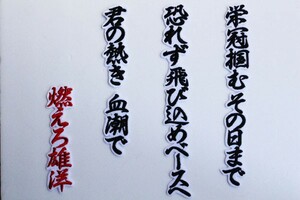 栄冠掴むその日まで
恐れず飛び込めベースへ
君の熱き血潮で
燃えろ雄洋